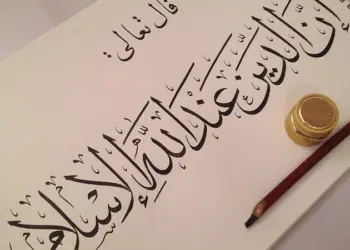 قال تعالى
إِنَّ الدِّينَ عِنْدَ اللَّهِ الْإِسْلَام